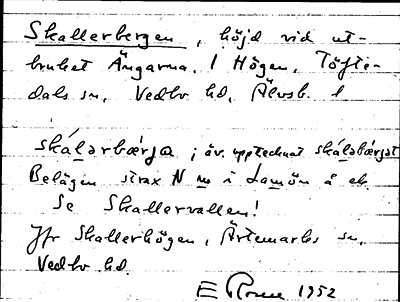 Skallerbergen, höjd vid ut-
bruket Ängarna. / Högen, Töfte-
dals sn, Vedbo hd, Älvsb. l
skálərbæ̀rja ; äv. upptecknat skáləbærjət
Belägen strax N m i Lamön å ek.
Se Skallervallen!
Jfr Skallerhögen, Ärtemarks sn,
Vedbo hd.
E 1952